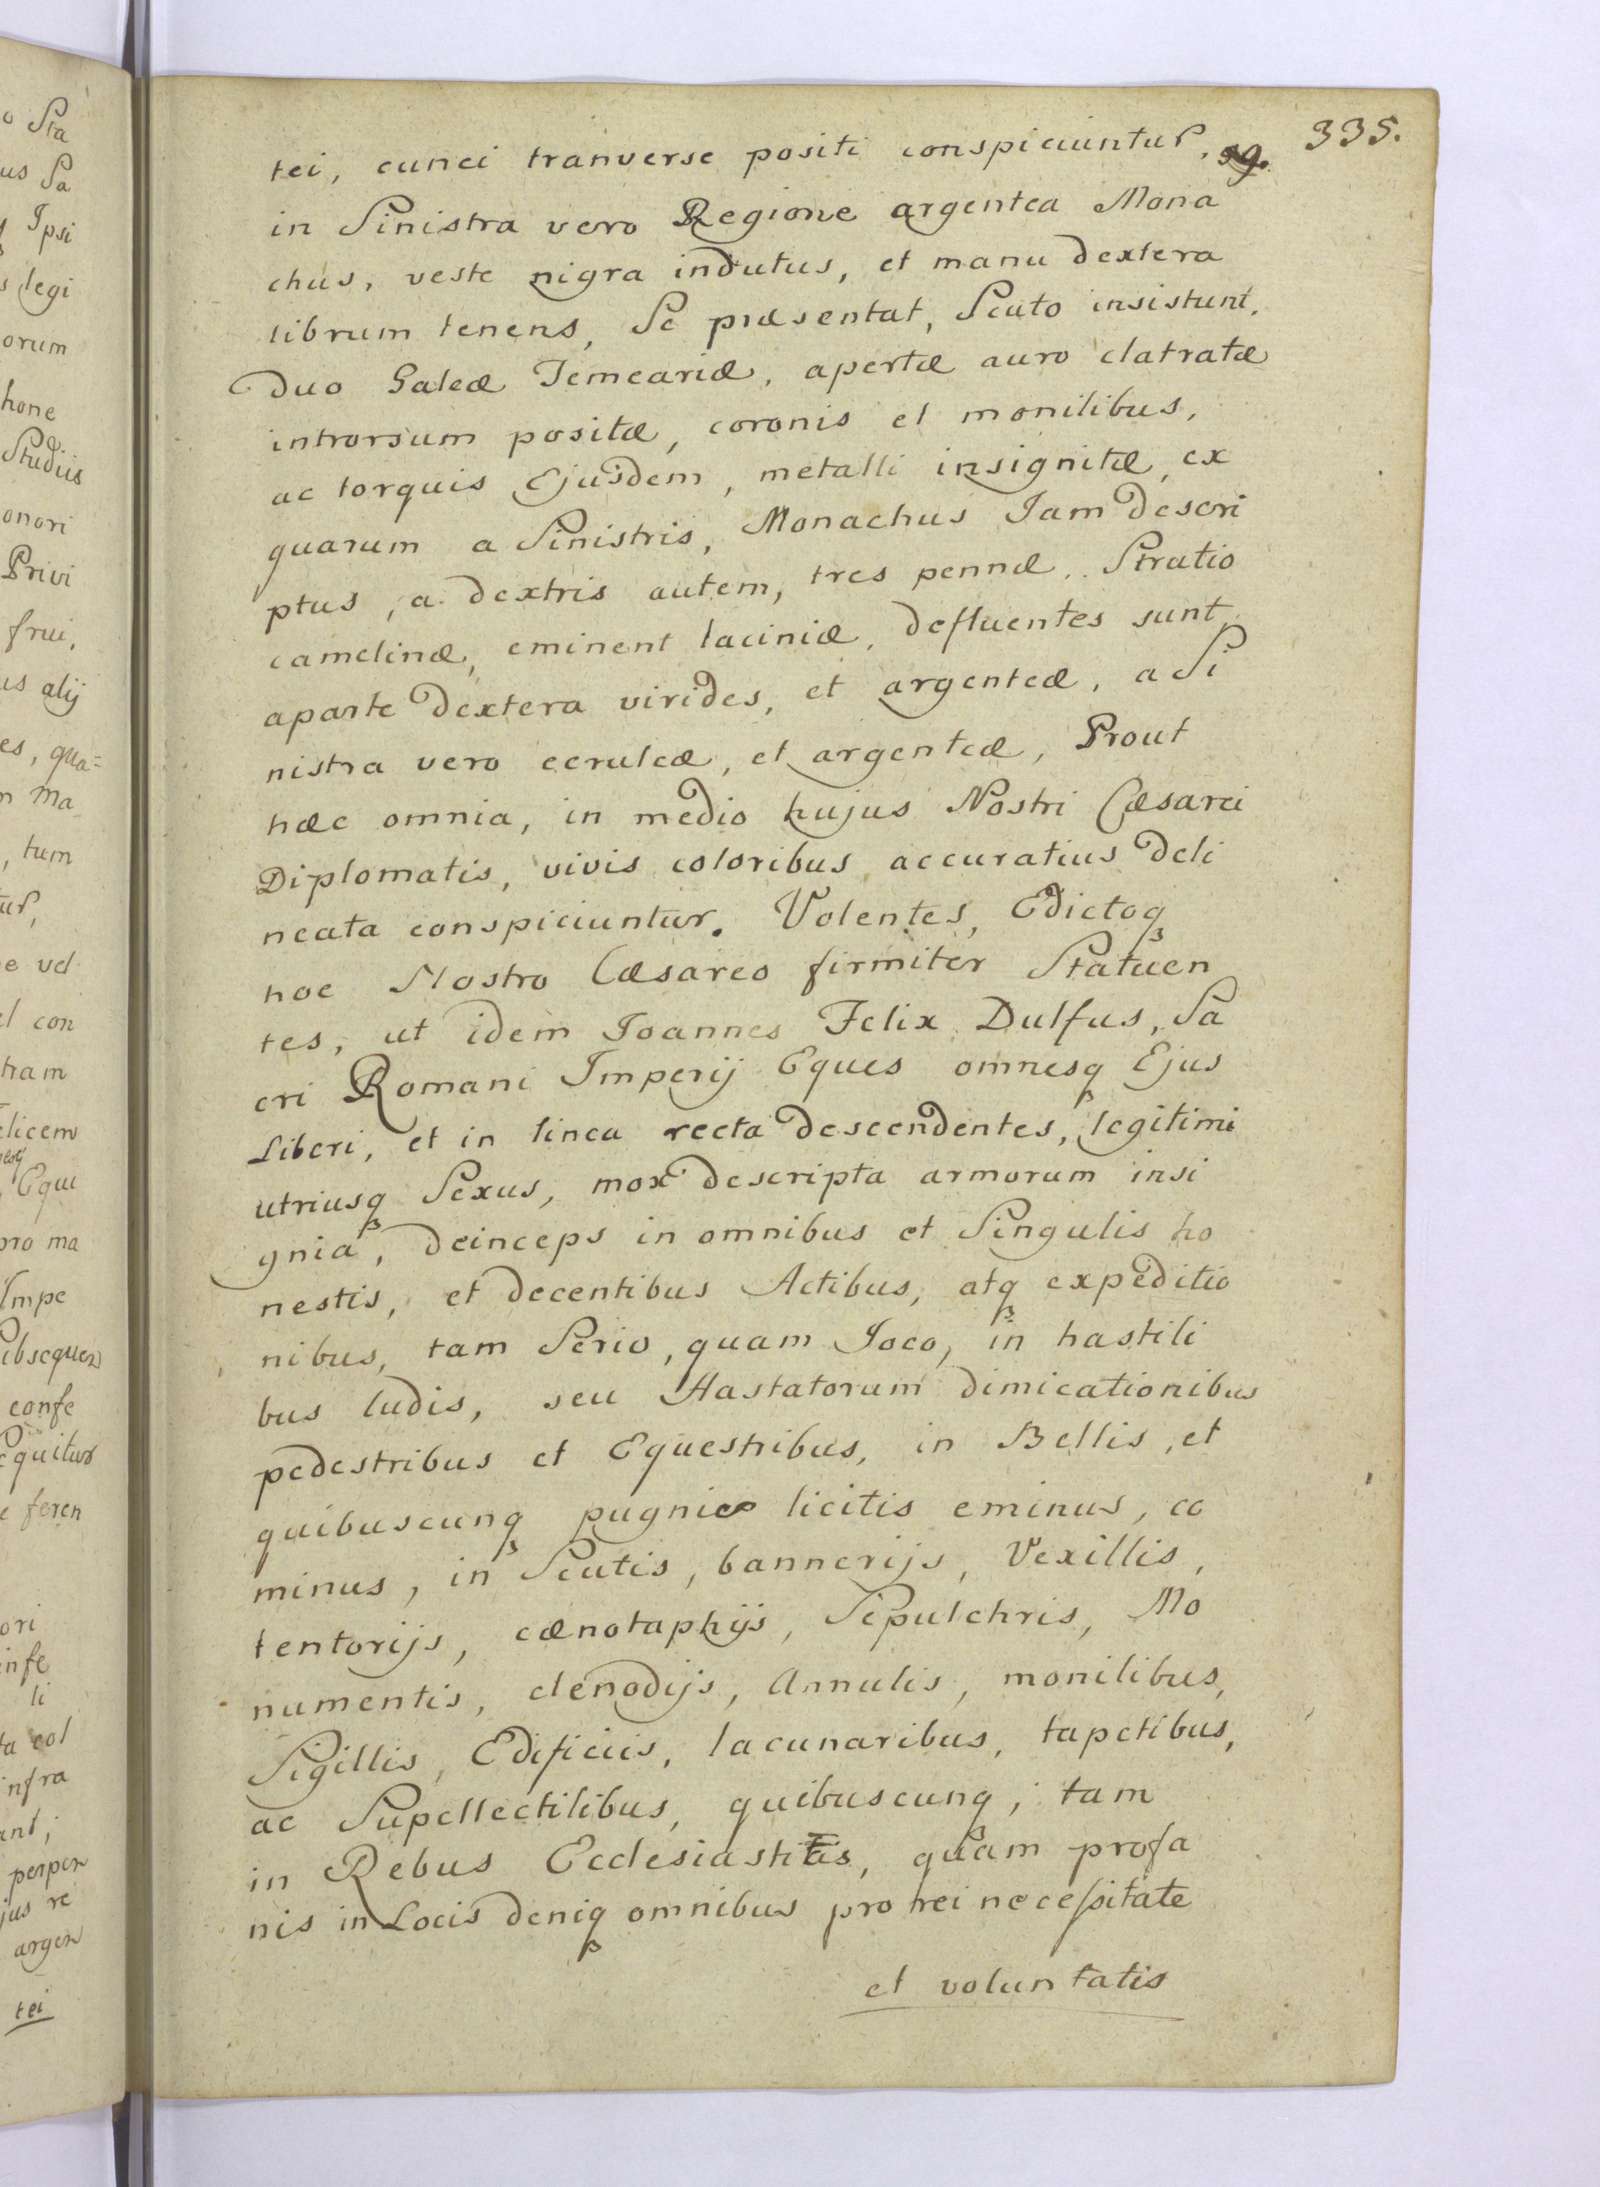 335.
tei, cunei tranverse positi conspiciuntur. 59.
in Sinistra vero Regione argentea Mona
chus, veste nigra indutus, et manu dextera
librum tenens, Se præsentat, Scuto insistunt.
Duo Galeæ Temeariæ, apertæ auro clatratæ
introrsum positæ, coronis et monilibus,
ac torquis Ejusdem, metalli insignitæ, ex
quarum a Sinistris, Monachus Jam descri
ptus, a dextris autem, tres pennæ. Stratio
camelinæ, eminent laciniæ, defluentes sunt,
aparte dextera virides, et argenteæ, a Si
nistra vero ceruleæ, et argenteæ, Prout
hæc omnia, in medio hujus Nostri Cæsarei
Diplomatis, vivis coloribus accuratius deli
neata conspiciuntur. Volentes, Edictoq
hoc Nostro Cæsareo firmiter Statuen
tes, ut idem Joannes Felix Dulfus, Sa
cri Romani Imperij Eques omnesq Ejus
Liberi, et in linea recta descendentes, legitimi
utriusq Sexus, mox descripta armorum insi
gnia, deinceps in omnibus et Singulis ho
nestis, et decentibus Actibus, atq expeditio
nibus, tam Serio, quam Joco, in hastili
bus ludis, seu Hastatorum dimicationibus
pedestribus et Equestribus, in Bellis, et
quibuscunq pugnis licitis eminus, co
minus, in Scutis, bannerijs, Vexillis,
tentorijs, cænotaphijs, Sepulchris, Mo
numentis, clenodijs, Annulis, monilibus,
Sigillis, Edificiis, lacunaribus, tapetibus,
ac Supellectilibus, quibuscunq; tam
in Rebus Ecclesiasticis, quam profa
nis in Locis deniq omnibus pro rei necessitate
et voluntatis